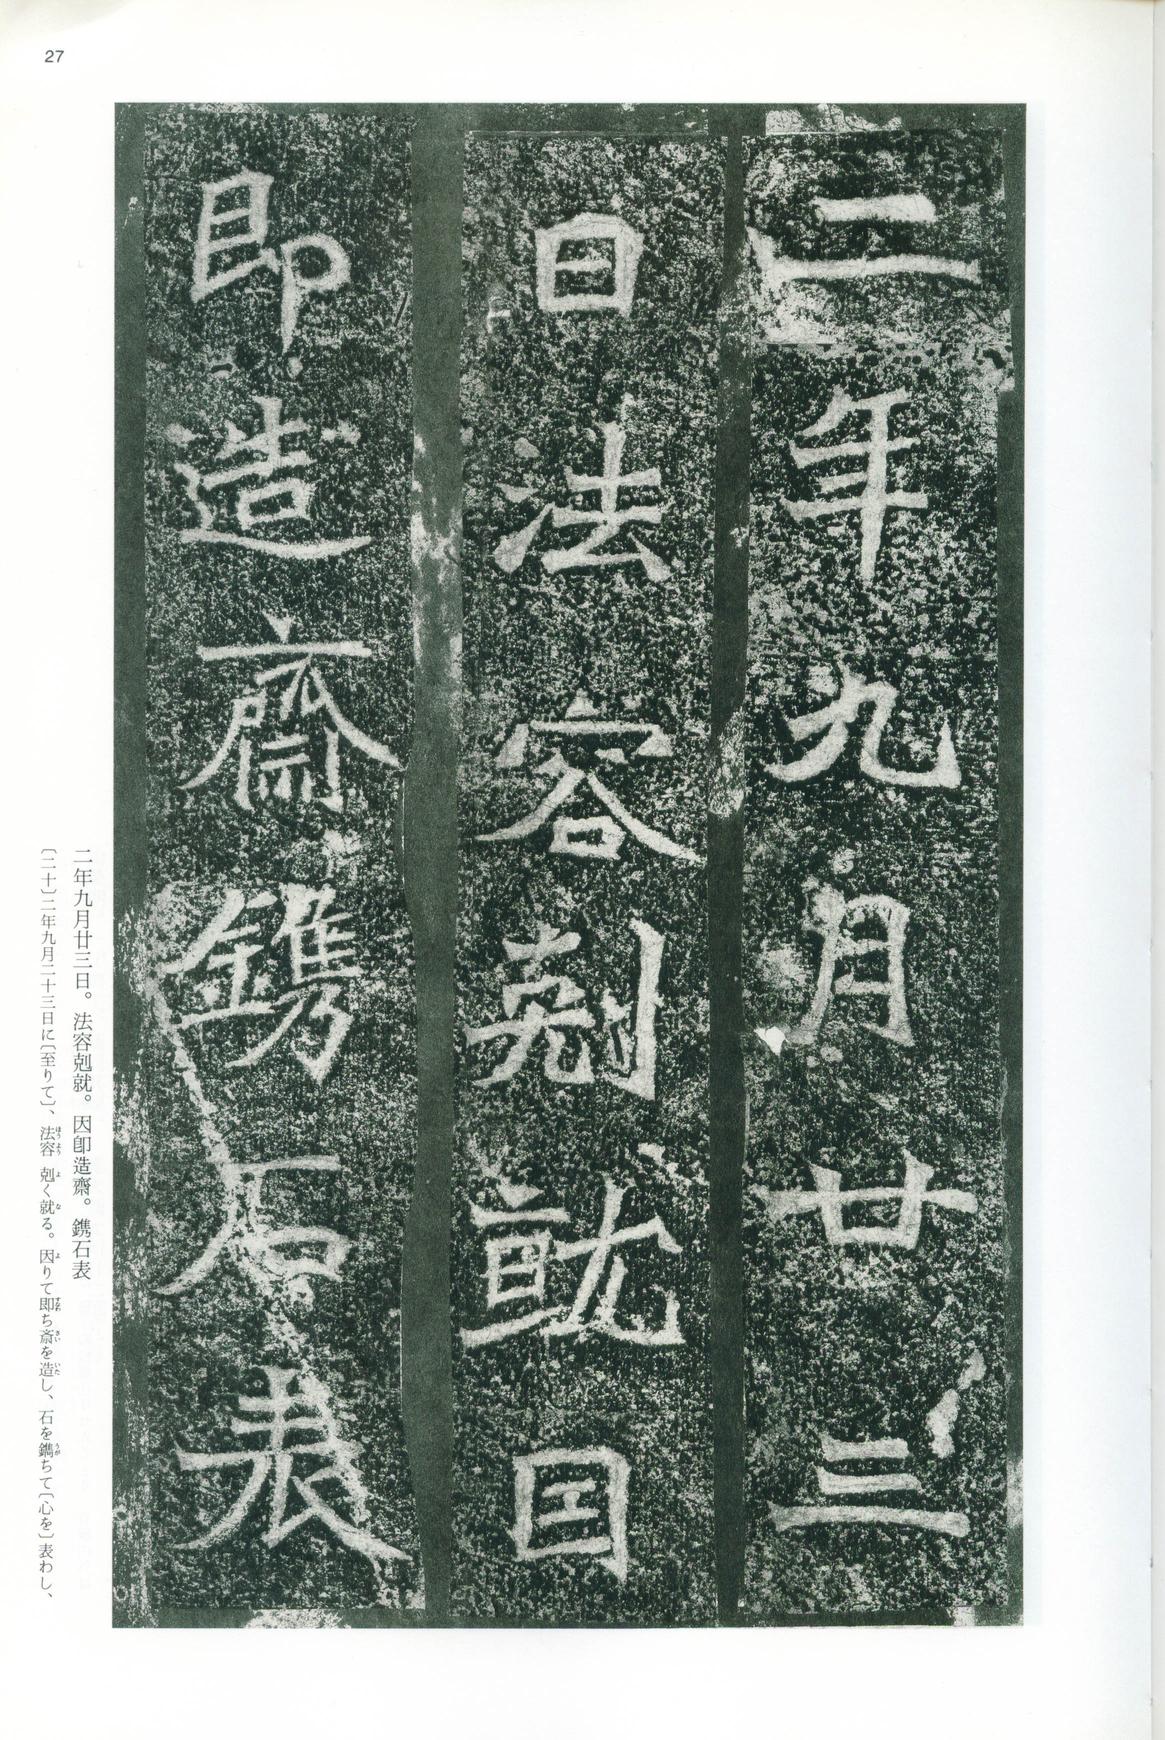 27
二年九月廿三
日法容剋就因
即造齋鐫石表
二年九月廿三日。法容剋就。因卽造齋。鐫石表
〔二十〕二年九月二十三日に〔至りて〕、法容 剋く就る。因りて即ち斎を造し、石を鐫ちて〔心を〕表わし、